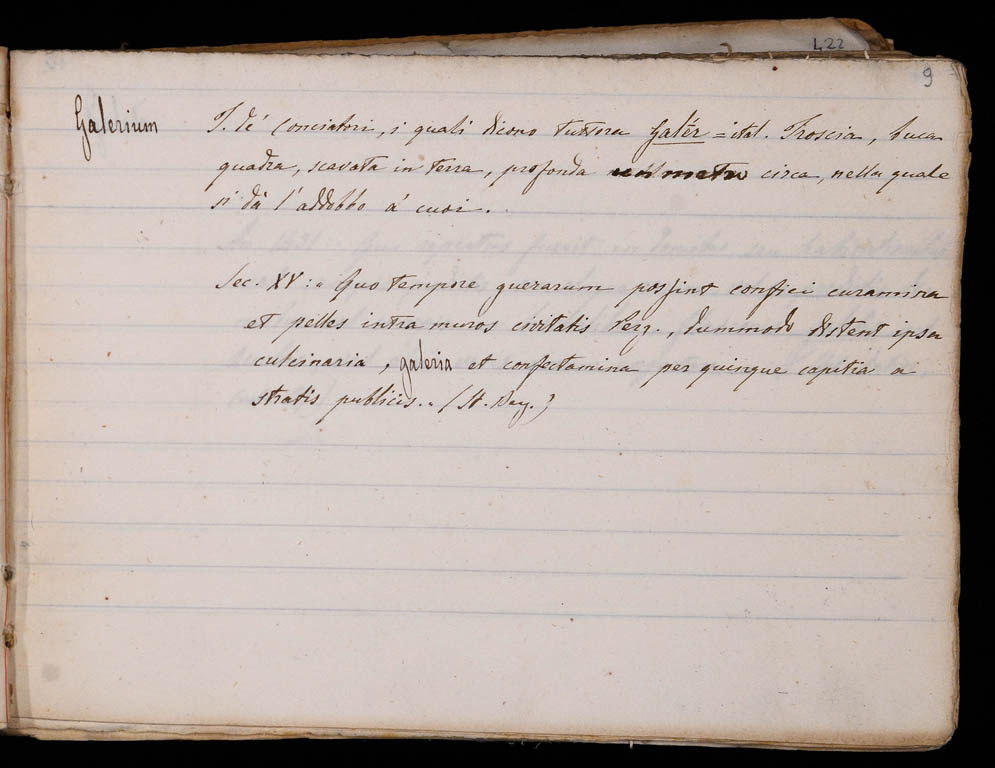 422
9
Galerium T. de' Conciatori, i quali dicono tuttora Galér = ital. Troscia, buca
quadra, scavata in terra, profonda un metro circa, nella quale
si dà l'addobbo a' cuoi.
Sec. XV: "Quo tempore guerarum possint confici curamina
et pelles intra muros civitatis Perg., dummodo distent ipsa
culcinaria, galeria et confectamina per quinque capitia a
stratis publicis." (St. )